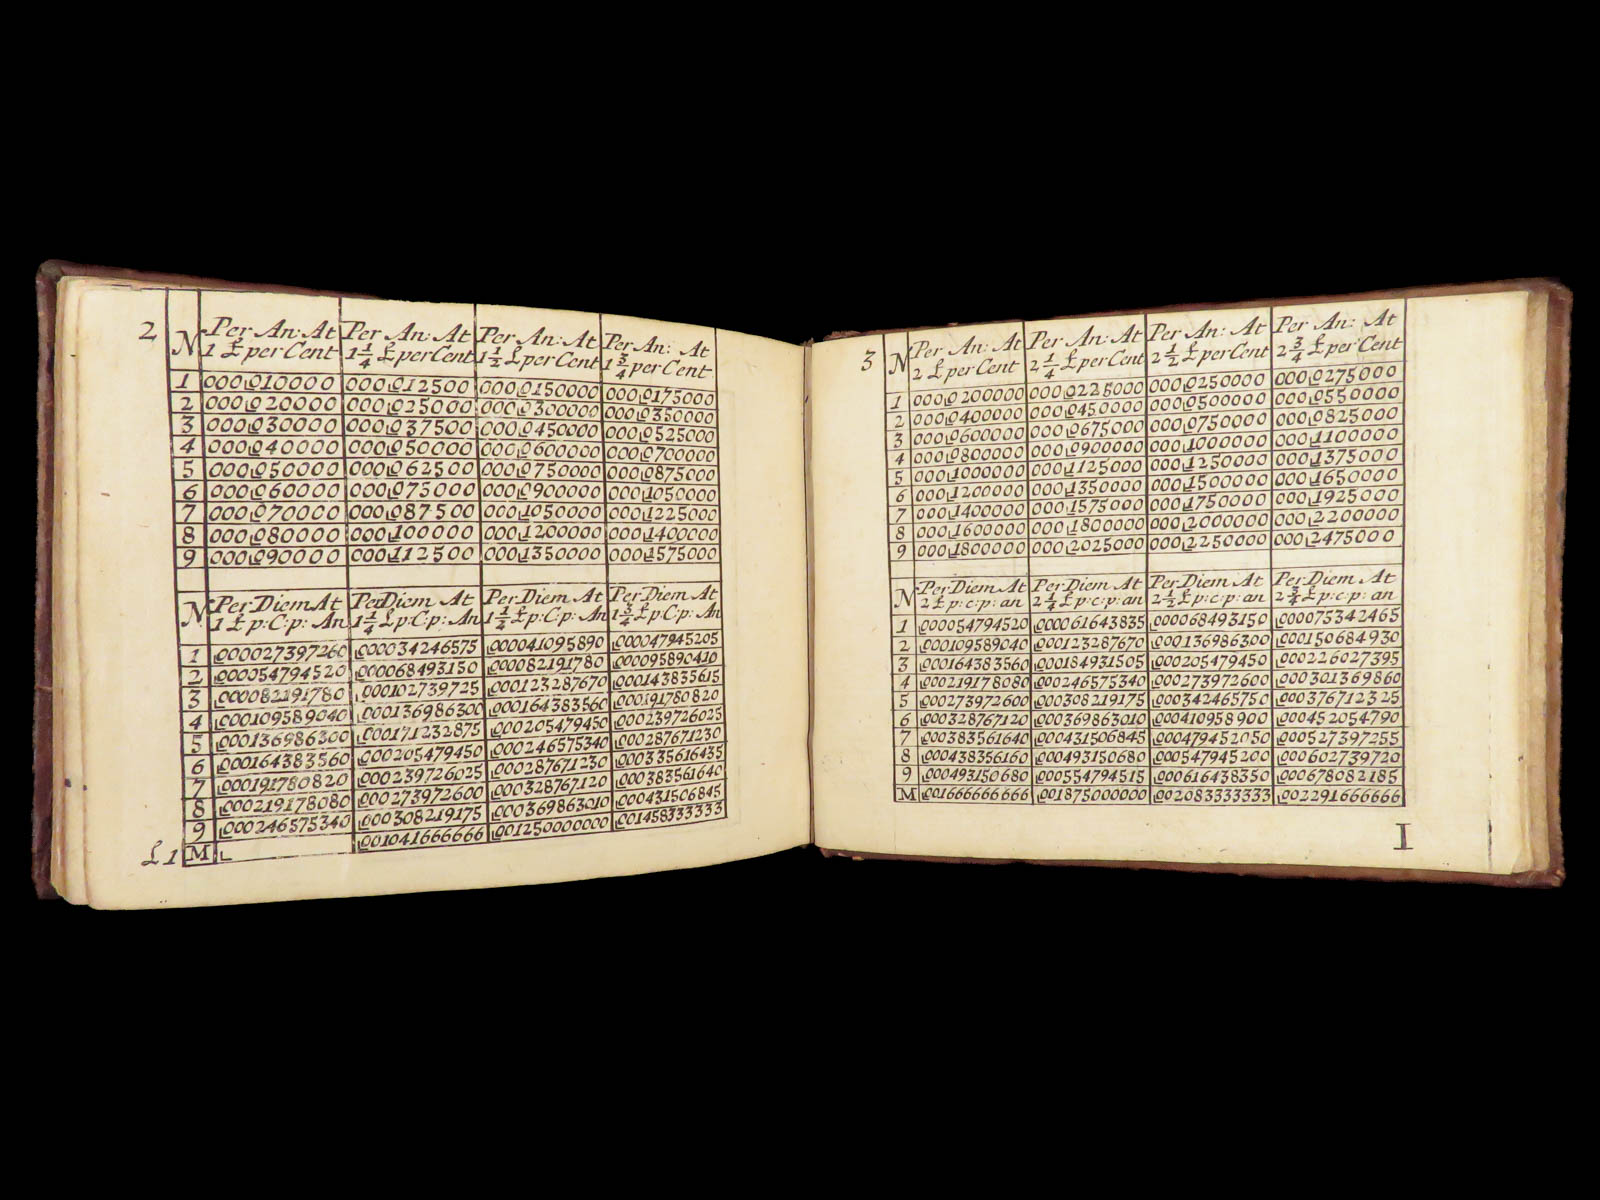 2
N Per An: At Per An: At Per An: At Per An: At
1 £ per Cent 1 1/4 £ per Cent 1 1/2 £ per Cent 1 3/4 per Cent
1 000⌊010000 000⌊012500 000⌊0150000 000⌊0175000
2 000⌊020000 000⌊025000 000⌊0300000 000⌊0350000
3 000⌊030000 000⌊037500 000⌊0450000 000⌊0525000
4 000⌊040000 000⌊050000 000⌊0600000 000⌊0700000
5 000⌊050000 000⌊062500 000⌊0750000 000⌊0875000
6 000⌊060000 000⌊075000 000⌊0900000 000⌊1050000
7 000⌊070000 000⌊087500 000⌊1050000 000⌊1225000
8 000⌊080000 000⌊100000 000⌊1200000 000⌊1400000
9 000⌊090000 000⌊112500 000⌊1350000 000⌊1575000
N Per Diem At Per Diem At Per Diem At Per Diem At
1 £ p: C: p: An 1 1/4 £ p: C: p: An 1 1/2 £ p: C: p: An 1 3/4 £ p: C: p: An
1 ⌊000027397260 ⌊000034246575 ⌊000041095890 ⌊000047945205
2 ⌊000054794520 ⌊000068493150 ⌊000082191780 ⌊000095890410
3 ⌊000082191780 ⌊000102739725 ⌊000123287670 ⌊000143835615
4 ⌊000109589040 ⌊000136986300 ⌊000164383560 ⌊000191780820
5 ⌊000136986300 ⌊000171232875 ⌊000205479450 ⌊000239726025
6 ⌊000164383560 ⌊000205479450 ⌊000246575340 ⌊000287671230
7 ⌊000191780820 ⌊000239726025 ⌊000287671230 ⌊000335616435
8 ⌊000219178080 ⌊000273972600 ⌊000328767120 ⌊000383561640
9 ⌊000246575340 ⌊000308219175 ⌊000369863010 ⌊000431506845
£ 1 M ⌊ ⌊001041666666 ⌊001250000000 ⌊001458333333
3
N Per An: At Per An: At Per An: At Per An: At
2 £ per Cent 2 1/4 £ per Cent 2 1/2 £ per Cent 2 3/4 £ per Cent
1 000⌊0200000 000⌊0225000 000⌊0250000 000⌊0275000
2 000⌊0400000 000⌊0450000 000⌊0500000 000⌊0550000
3 000⌊0600000 000⌊0675000 000⌊0750000 000⌊0825000
4 000⌊0800000 000⌊0900000 000⌊1000000 000⌊1100000
5 000⌊1000000 000⌊1125000 000⌊1250000 000⌊1375000
6 000⌊1200000 000⌊1350000 000⌊1500000 000⌊1650000
7 000⌊1400000 000⌊1575000 000⌊1750000 000⌊1925000
8 000⌊1600000 000⌊1800000 000⌊2000000 000⌊2200000
9 000⌊1800000 000⌊2025000 000⌊2250000 000⌊2475000
N Per Diem At Per Diem At Per Diem At Per Diem At
2 £ p: c: p: an 2 1/4 £ p: c: p: an 2 1/2 £ p: c: p: an 2 3/4 £ p: c: p: an
1 ⌊000054794520 ⌊000061643835 ⌊000068493150 ⌊000075342465
2 ⌊000109589040 ⌊000123287670 ⌊000136986300 ⌊000150684930
3 ⌊000164383560 ⌊000184931505 ⌊000205479450 ⌊000226027395
4 ⌊000219178080 ⌊000246575340 ⌊000273972600 ⌊000301369860
5 ⌊000273972600 ⌊000308219175 ⌊000342465750 ⌊000376712325
6 ⌊000328767120 ⌊000369863010 ⌊000410958900 ⌊000452054790
7 ⌊000383561640 ⌊000431506845 ⌊000479452050 ⌊000527397255
8 ⌊000438356160 ⌊000493150680 ⌊000547945200 ⌊000602739720
9 ⌊000493150680 ⌊000554794515 ⌊000616438350 ⌊000678082185
M ⌊001666666666 ⌊001875000000 ⌊002083333333 ⌊002291666666
I